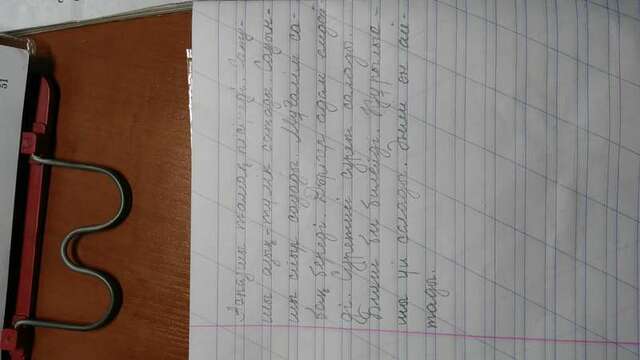 51
Аспазшы тамақ пісіреді. Сату-
шы азық-түлік сатады. Сауын-
шы сиыр сауады. Мұғалім са-
бақ береді. Дәрігер адам емдей-
ді. Суретші сурет салады.
Биші би билейді. Құрылыс-
шы үй салады. Әнші ән ай-
тады.